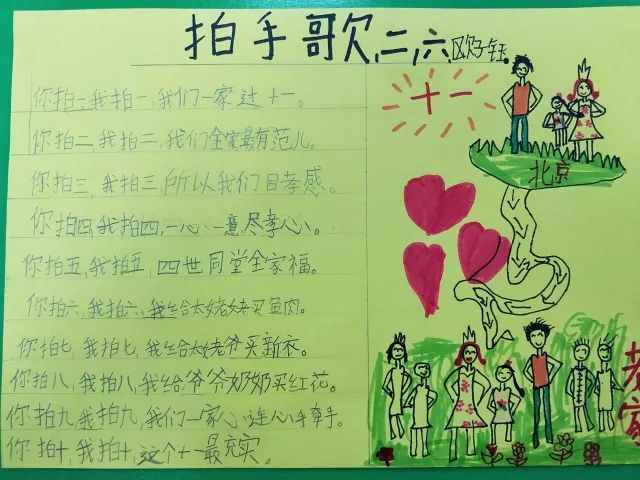 拍手歌 二、六 欧子钰
你拍一,我拍一,我们一家过十一。
你拍二,我拍二,我们全家最有范儿。
你拍三,我拍三,所以我们目孝感。
你拍四,我拍四,一心一意尽孝心。
你拍五,我拍五,四世同堂全家福。
你拍六,我拍六,我给太姥姥买鱼肉。
你拍七,我拍七,我给太姥爷买新衣。
你拍八,我拍八,我给爷爷奶奶买红花。
你拍九,我拍九,我们一家心连心手牵手。
你拍十,我拍十,这个十一最充实。
十一
北京
老家